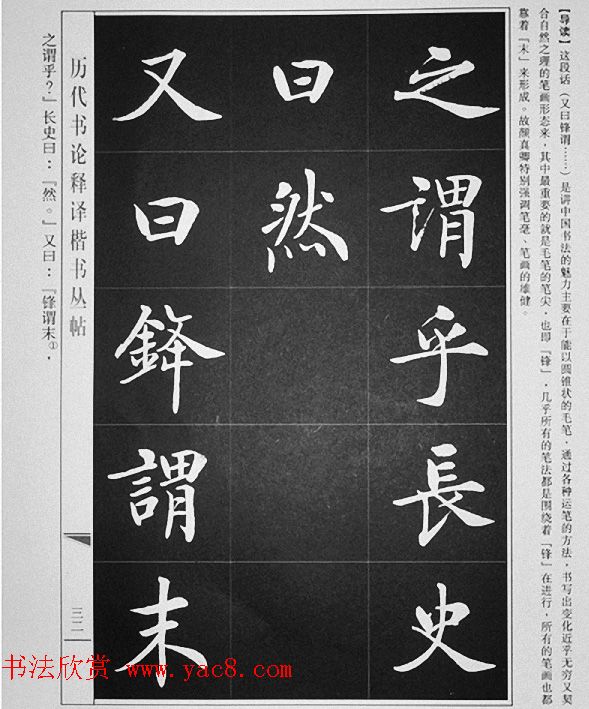 【导读】这段话（又曰锋谓……）是讲中国书法的魅力主要在于能以圆锥状的毛笔，通过各种运笔的方法，书写出变化近乎无穷又契
合自然之理的笔画形态来，其中最重要的就是毛笔的笔尖，也即「锋」，几乎所有的笔法都是围绕着「锋」在进行，所有的笔画也都
靠着「末」来形成。故颜真卿特别强调笔毫、笔画的雄健。
之謂乎長史
曰然
又曰鋒謂末
历代书论释译楷书丛帖
三二
之谓乎？」长史曰：『然。』又曰：『锋谓末①，
书法欣赏 www.yac8.com